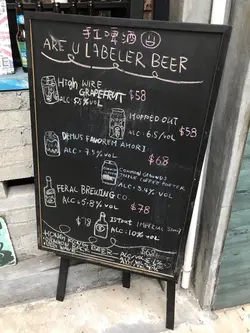 手工啤酒
ARE U LABELER BEER
HIGH WIRE
GRAPEFRUIT $58
ALC 5.5% VOL
HOPPED OUT
ALC : 6.5% VOL $58
DEMUS FAVOREM AMORI
ALC : 7.5% VOL
$68
COMMON GROUNDS
TRIPLE COFFEE PORTER
ALC : 8.4% VOL
FERAL BREWING
CO.
ALC : 5.8% VOL $78
$78 ISTOUT IMPERIAL STOUT
ALC : 10% VOL
BEER